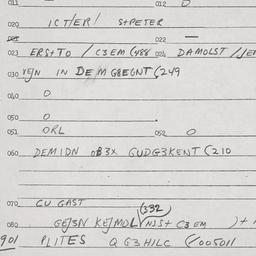 011 012 0
020 ICTER/ S+PETER
022 —
023 ERS+TO / C3EM (488 024 DAMOLST /JE
030 IN DEMGBEGNT (249
040 0
050 0
051 ORL 052 0
060 DEMIDN OB3X GUDG3KENT (210
070 CU GAST
(332
080 GEJ3N KEJMOL NJS+ C3EM ) +
901 PLITES Q G3HILC (/005011